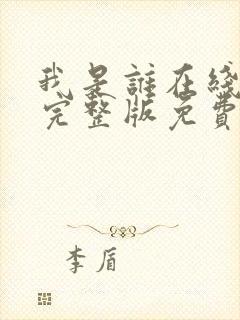 我是誰在綫
完整版免費
李盾